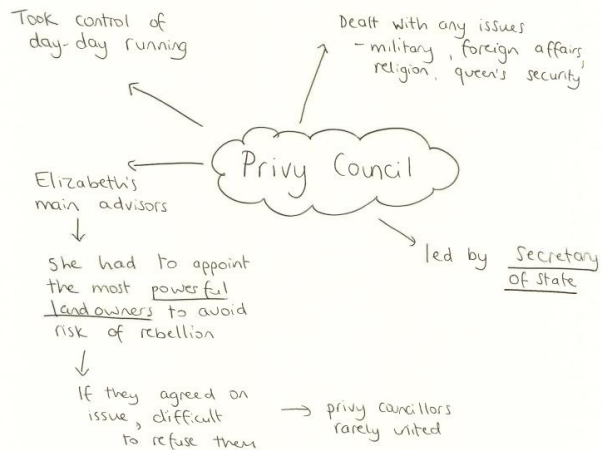 Took control of
day-day running
Dealt with any issues
- military, foreign affairs,
religion, queen's security
Privy Council
Elizabeth's
main advisors
led by Secretary
of State
She had to appoint
the most powerful
landowners to avoid
risk of rebellion
If they agreed on
issue, difficult
to refuse them
privy councillors
rarely united